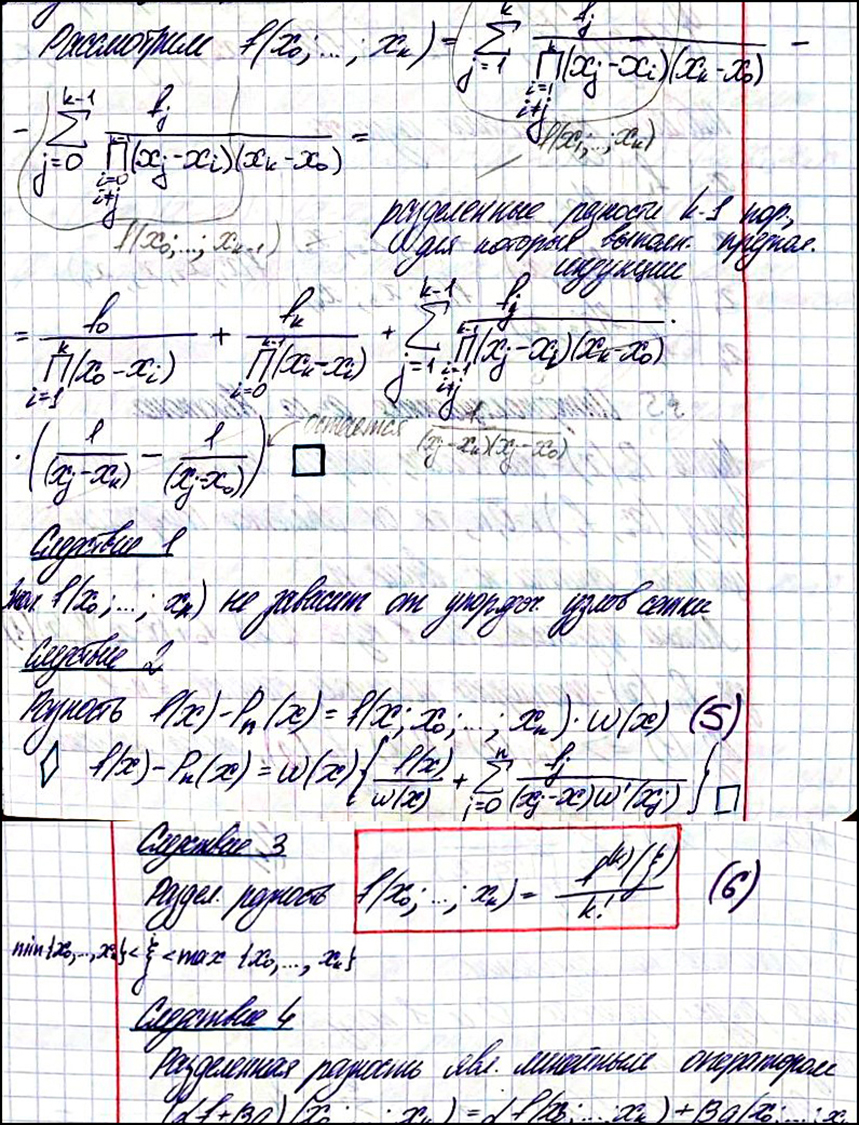 Рассмотрим f(x₀; ...; xₖ) = ∑_{j=1}^{k} fⱼ / (∏_{i=1, i≠j}^{k} (xⱼ-xᵢ)(xₖ-x₀)) −
− ∑_{j=0}^{k-1} fⱼ / (∏_{i=0, i≠j}^{k-1} (xⱼ-xᵢ)(xₖ-x₀)) =
f(x₁; ...; xₖ)
f(x₀; ...; xₖ₋₁)
разделенные разности k-1 пор.,
для которых выполн. предпол.
индукции
= f₀ / ∏_{i=1}^{k} (x₀-xᵢ) + fₖ / ∏_{i=0}^{k-1} (xₖ-xᵢ) + ∑_{j=1}^{k-1} fⱼ / (∏_{i=1, i≠j}^{k-1} (xⱼ-xᵢ)(xₖ-x₀)) ·
· (1/(xⱼ-xₖ) − 1/(xⱼ-x₀)) остается 1/((xⱼ-xₖ)(xⱼ-x₀)) □
Следствие 1
Знач. f(x₀; ...; xₙ) не зависит от упорядоч. узлов сетки
Следствие 2
Разность f(x) − Pₙ(x) = f(x; x₀; ...; xₙ) · ω(x) (5)
◊ f(x) − Pₙ(x) = ω(x) { f(x)/ω(x) + ∑_{j=0}^{n} fⱼ / ((xⱼ-x)ω'(xⱼ)) } □
Следствие 3
Раздел. разность f(x₀; ...; xₖ) = f⁽ᵏ⁾(ξ) / k! (6)
min{x₀,...,xₖ} < ξ < max {x₀,..., xₖ}
Следствие 4
Разделенная разность явл. линейным оператором
(αf+βg)(x₀; ...; xₖ) = αf(x₀; ...; xₖ) + βg(x₀; ...; xₖ